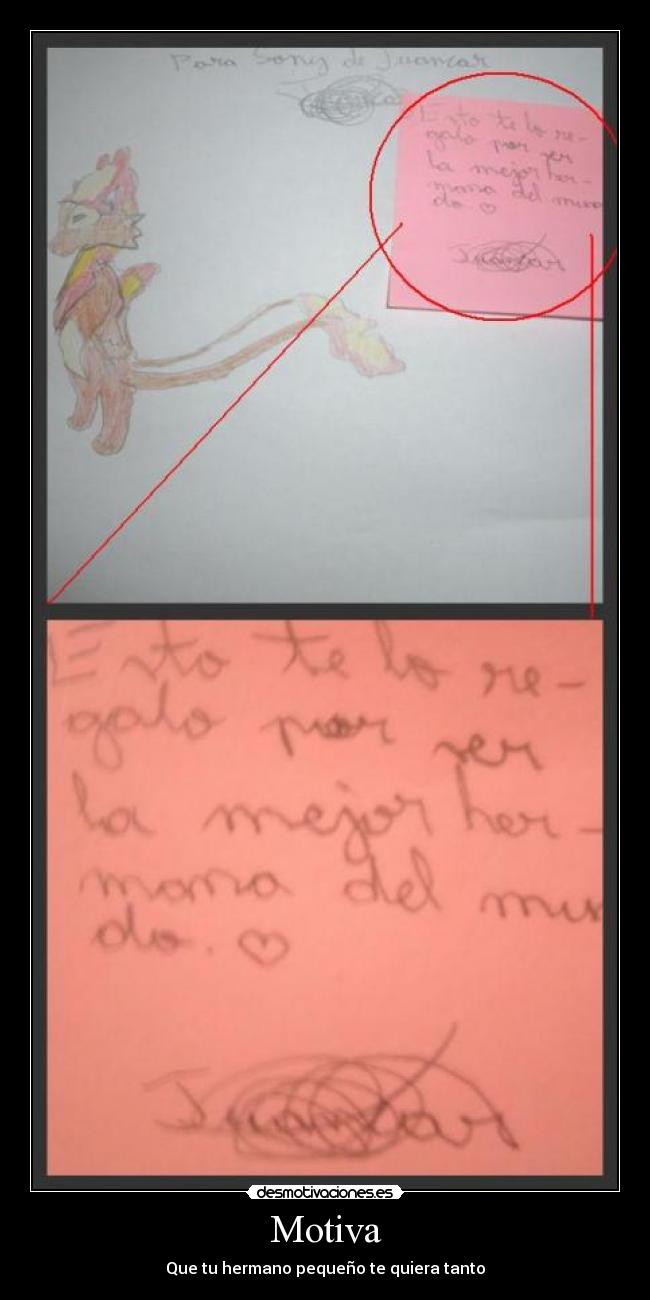 Para Sony de Juancar
Juancar
Esto te lo re-
galo por ser
la mejor her-
mana del mun
do. ♡
Juancar
Esto te lo re-
galo por ser
la mejor her-
mana del mun
do. ♡
Juancar
desmotivaciones.es
Motiva
Que tu hermano pequeño te quiera tanto